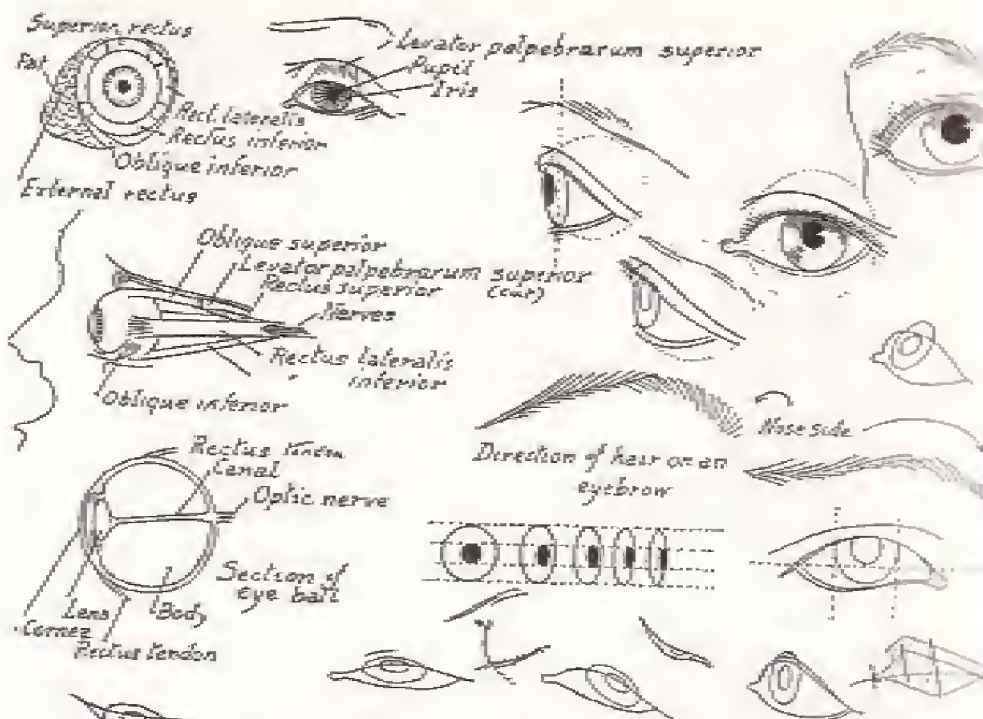 Superior rectus
Fat
Rect. lateralis
Rectus inferior
Oblique inferior
External rectus
Levator palpebrarum superior
Pupil
Iris
Oblique superior
Levator palpebrarum superior
(cut)
Rectus superior
Nerves
Rectus lateralis
inferior
Oblique inferior
Rectus tendon
Canal
Optic nerve
Section of
eye ball
Lens
Body
Cornea
Rectus tendon
Direction of hair on an
eyebrow
Nose side